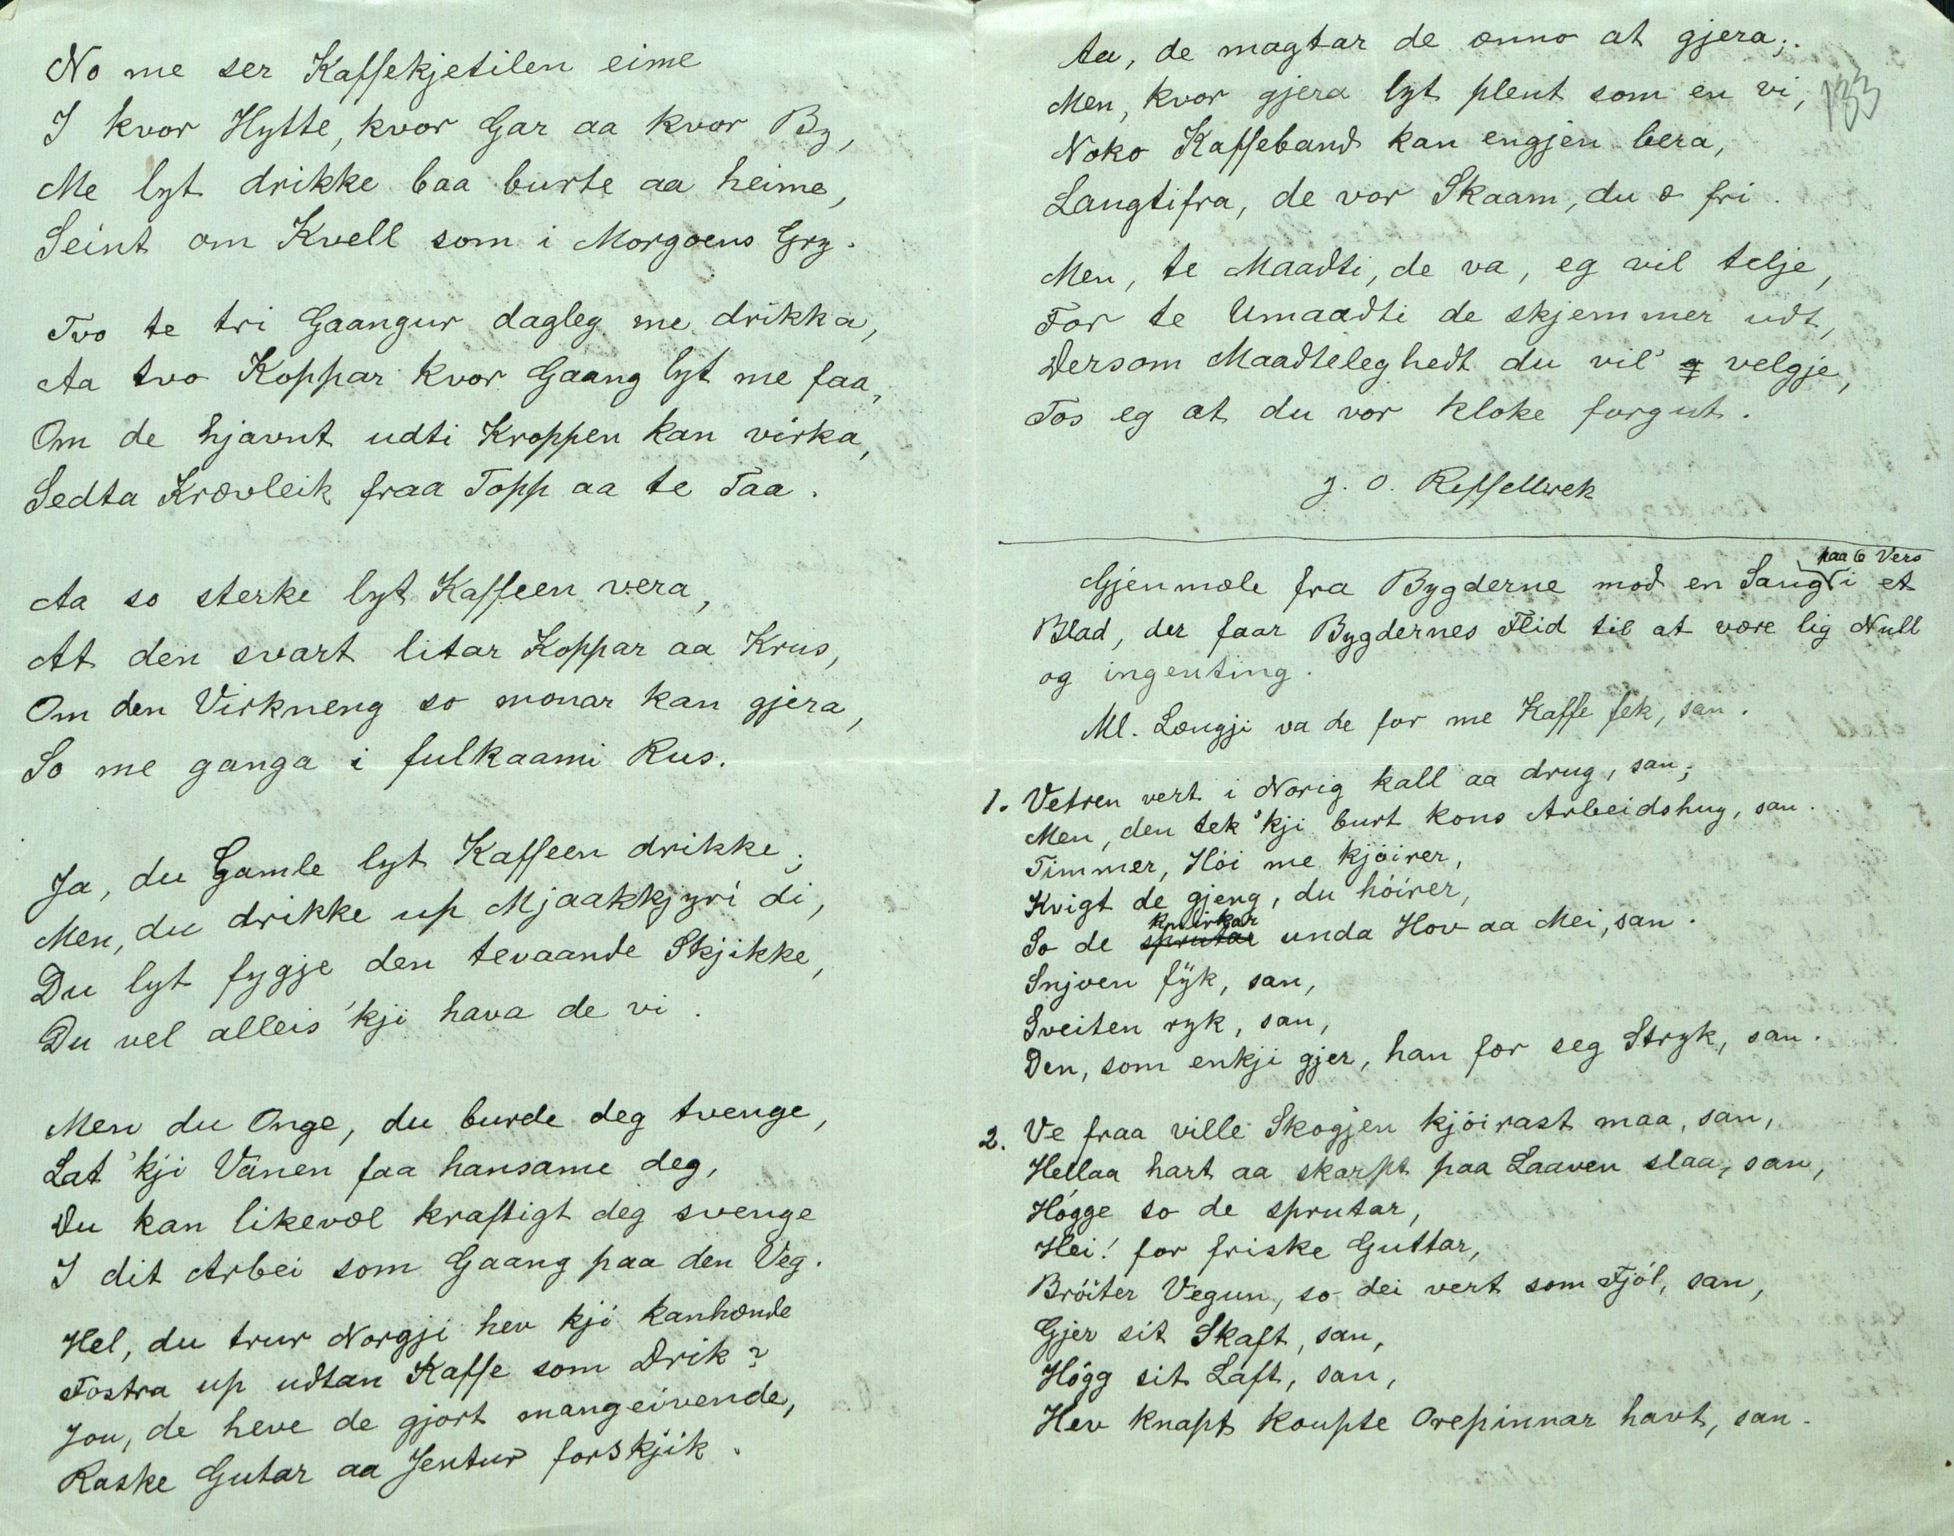 No me ser Kaffekjetilen eime
I kvor Hytte, kvor Gar aa kvor By,
Me lyt drikke baa burte aa heime,
Seint om Kvell som i Morgoens Gry.
Tvo te tri Gaangur dagleg me drikka,
Aa tvo Koppar kvor Gaang lyt me faa,
Om de hjavnt udti Kroppen kan virka,
Sedta Krævleik fraa Topp aa te Taa.
Aa so sterke lyt Kaffeen vera,
At den svart litar Koppar aa Krus,
Om den Virkneng so monar kan gjera,
So me ganga i fulkaami Rus.
Ja, du Gamle lyt Kaffeen drikke;
Men, du drikke up Mjaakkjyri di,
Du lyt fygje den tevaande Skjikke,
Du vel alleis 'kji hava de vi.
Men du Onge, du burde deg tvenge,
Lat 'kji Vanen faa hansame deg,
Du kan likevæl kraftigt deg svenge
I dit Arbei som Gaang paa den Veg.
Hel, du trur Norgji hev kji kanhænde
Fostra up udtan Kaffe som Drik?
Jou, de heve de gjort mangeivende,
Raske Gutar aa Jentur forskjik.
133
Aa, de magtar de ænno at gjera;
Men, kvor gjera lyt plent som en vi,
Noko Kaffeband kan engjen bera,
Langtifra, de vor Skaam, du æ fri.
Men, te Maadti, de va, eg vil telje,
For te Umaadti de skjemmer udt,
Dersom Maadteleghedt du vil velgje,
Tos eg at du vor kloke forgut.
J. O. Reffellvek
Gjenmæle fra Bygderne mod en Sang paa 6 Vers i et
Blad, der faar Bygdernes Flid til at være lig Null
og ingenting.
Ml. Længji va de for me Kaffe fek, san.
1. Vetren vert i Norig kall aa drug, san;
Men, den tek 'kji burt kons Arbeidshug, san.
Timmer, Höi me kjöirer,
Kvigt de gjeng, du höirer,
So de knirkar unda Hov aa Mei, san.
Snjoen fýk, san,
Sveiten ryk, san,
Den, som enkji gjer, han fær seg Stryk, san.
2. Ve fraa ville Skogjen kjöirast maa, san,
Hellaa hart aa skarpt paa Laaven slaa, san,
Högge so de sprutar,
Hei! for friske Guttar,
Bröiter Vegun, so dei vert som Fjöl, san,
Gjer sit Skaft, san,
Högg sit Laft, san,
Hev knapt koupte Orepinnar havt, san.